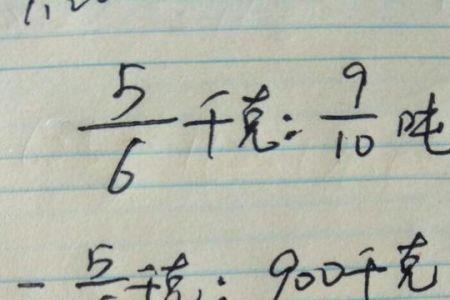 5/6千克:9/10吨
-5/千克:900千克